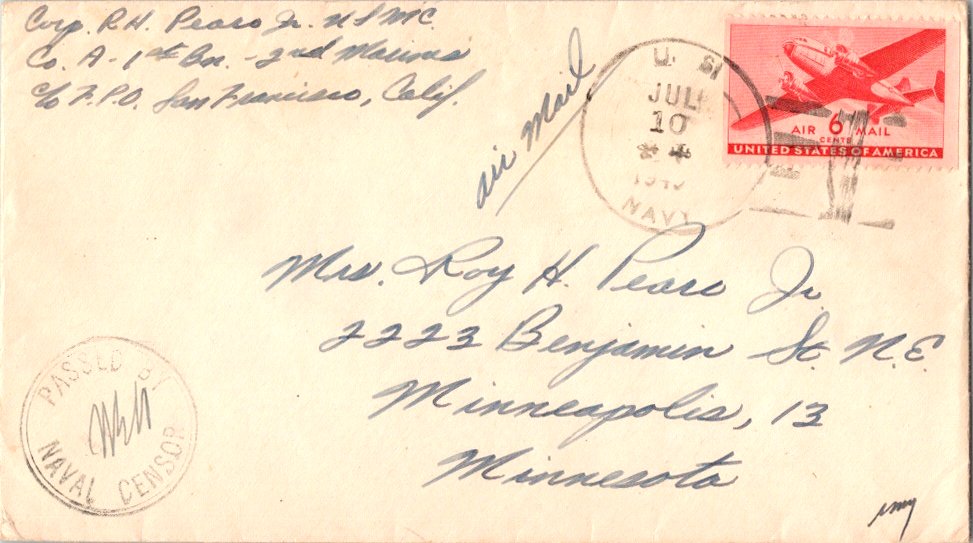 Corp. R.H. Pearo Jr. USMC
Co. A - 1st Bn. - 2nd Marines
c/o F.P.O. San Francisco, Calif.
air mail
U. S.
JUL
10
NAVY
AIR 6 MAIL
CENTS
UNITED STATES OF AMERICA
Mrs. Roy H. Pearo Jr.
2223 Benjamin St. N.E.
Minneapolis, 13
Minnesota
PASSED BY
NAVAL CENSOR